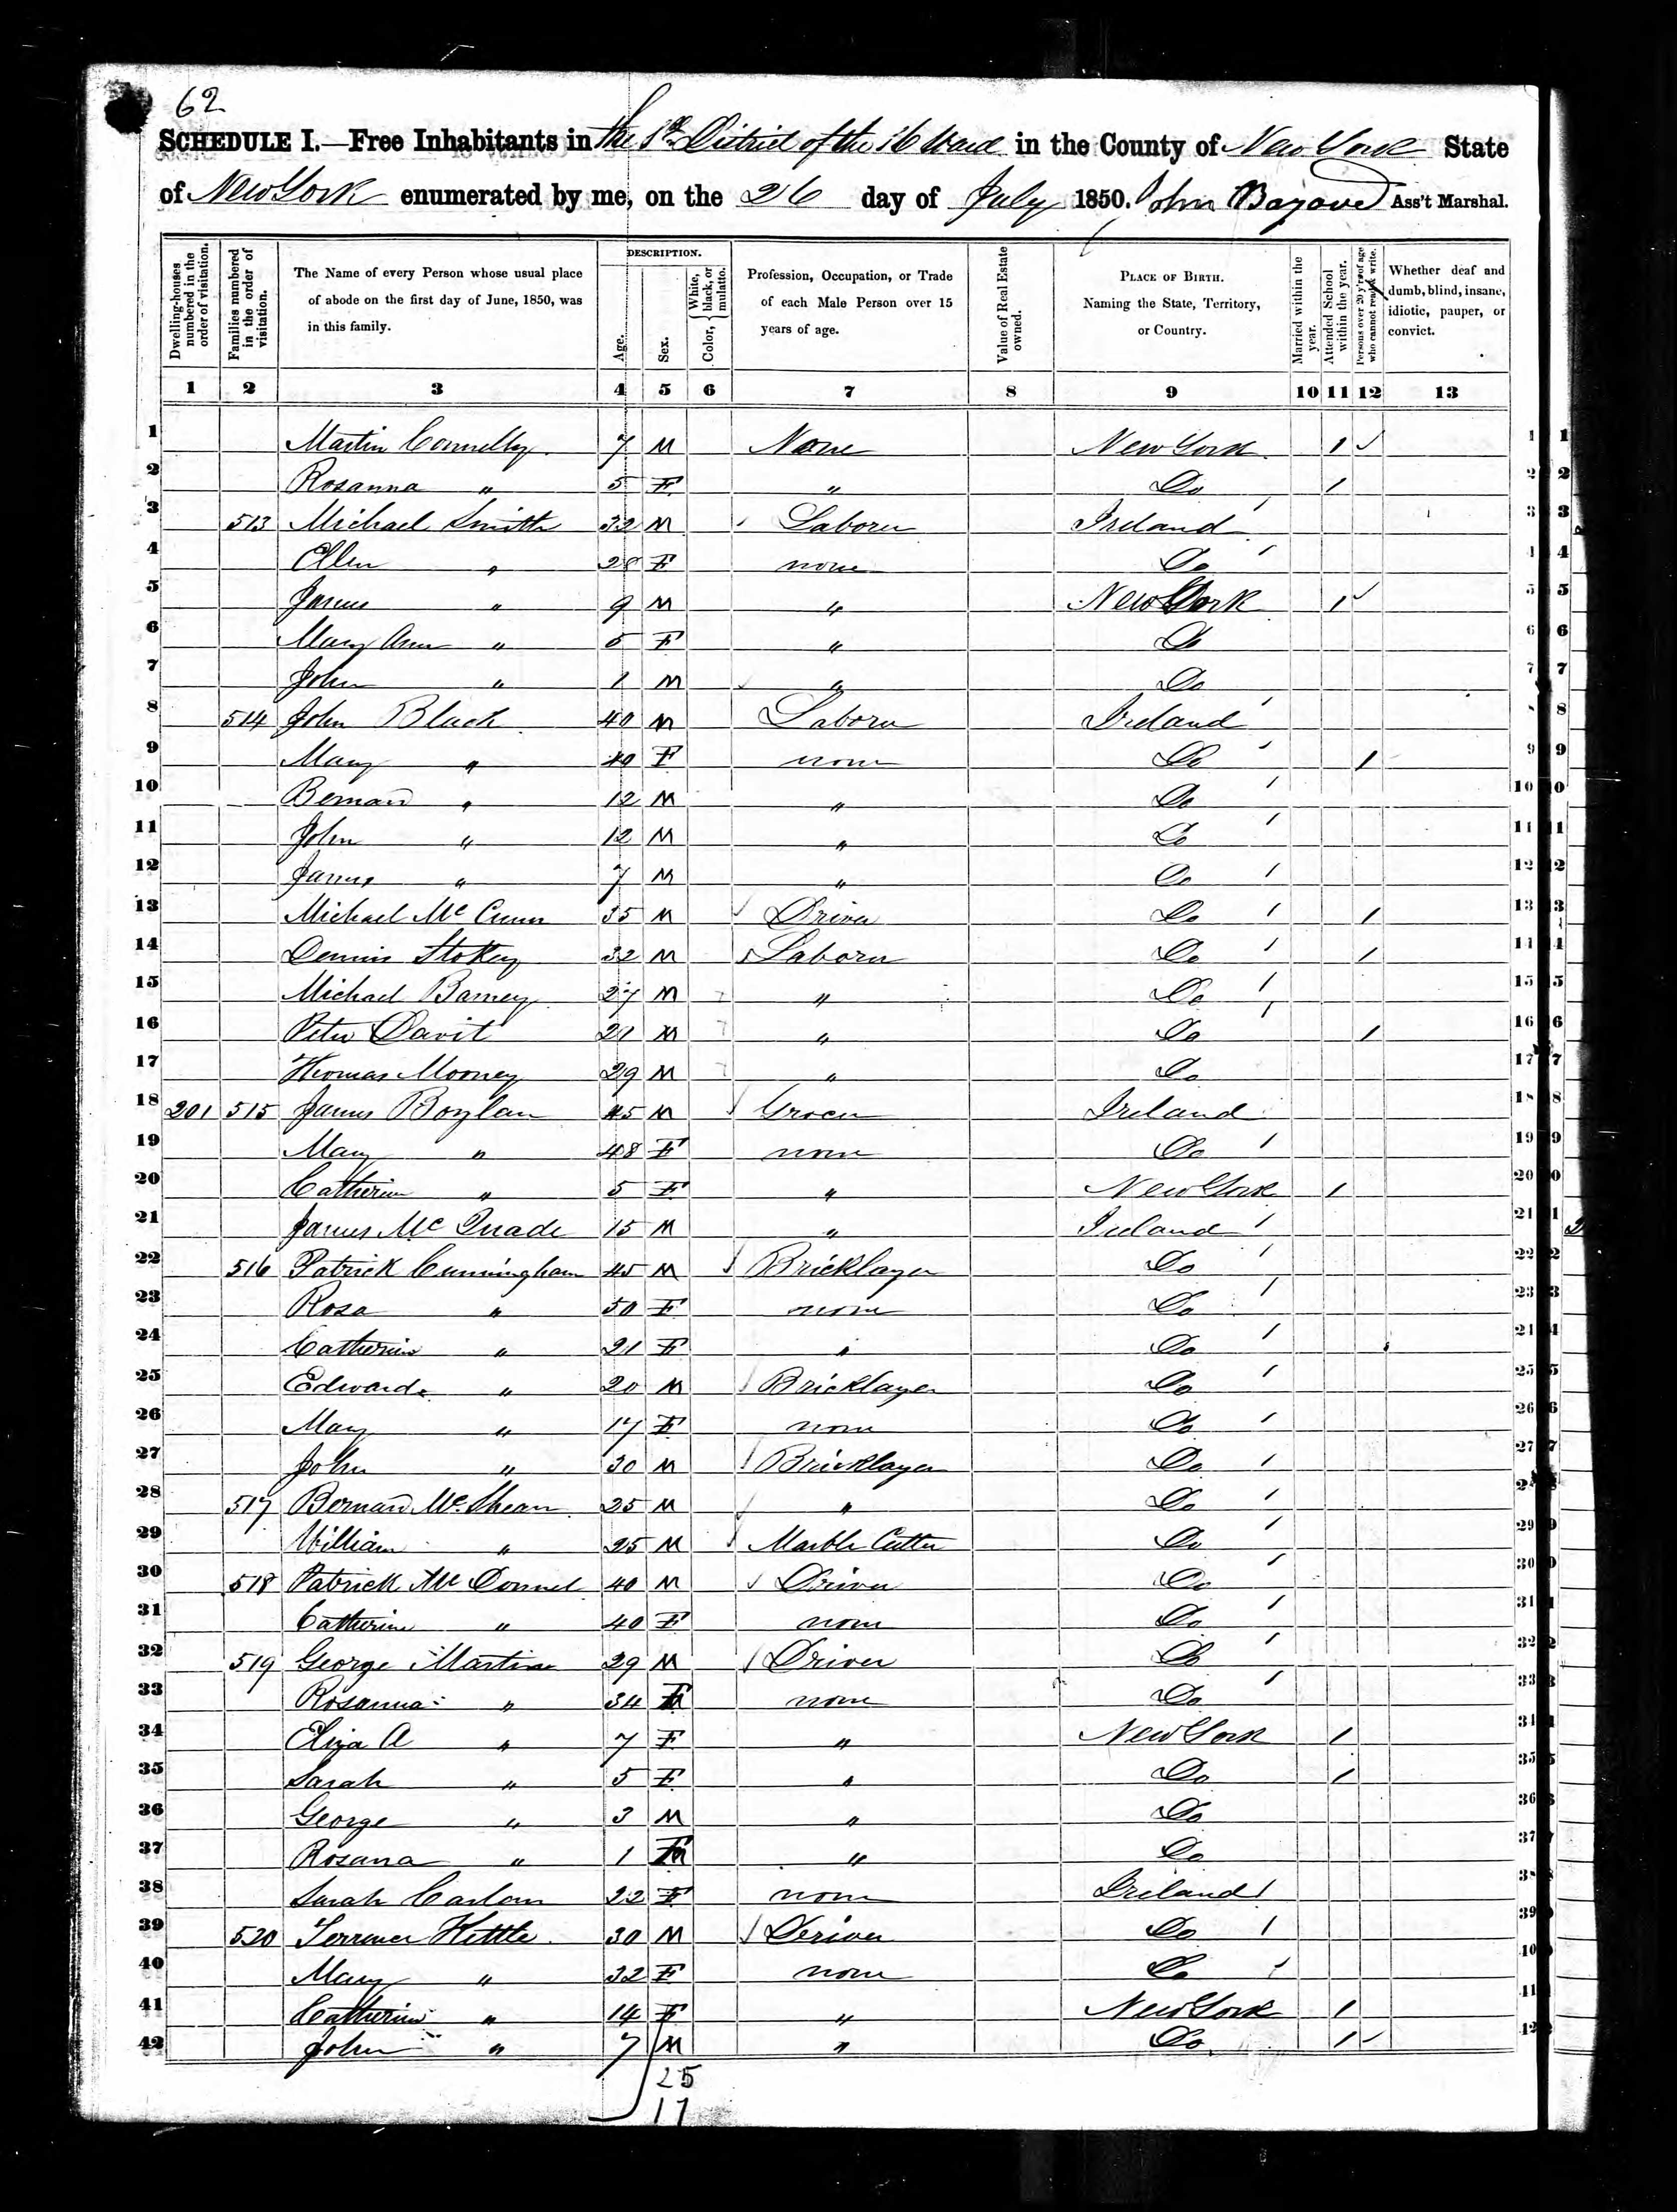 62
SCHEDULE I.—Free Inhabitants in the 1st District of the 16 Ward in the County of New York State
of New York enumerated by me, on the 26 day of July 1850. John Ass't Marshal.
Dwelling-houses numbered in the order of visitation.
Families numbered in the order of visitation.
The Name of every Person whose usual place of abode on the first day of June, 1850, was in this family.
DESCRIPTION.
Age.
Sex.
Color, { White, black, or mulatto.
Profession, Occupation, or Trade of each Male Person over 15 years of age.
Value of Real Estate owned.
PLACE OF BIRTH. Naming the State, Territory, or Country.
Married within the year.
Attended School within the year.
Persons over 20 y'rs of age who cannot read & write.
Whether deaf and dumb, blind, insane, idiotic, pauper, or convict.
1 2 3 4 5 6 7 8 9 10 11 12 13
1 Martin Connelly 7 M None New York 1 ✓ 1
2 Rosanna " 5 F " Do 1 2
3 513 Michael Smith 32 M Laborer Ireland 3
4 Ellen " 28 F none Do 4
5 James " 9 M " New York 1 ✓ 5
6 Mary Ann " 5 F " Do 6
7 John " 1 M " Do 7
8 514 John Black 40 M Laborer Ireland 8
9 Mary " 40 F none Do 1 9
10 Bernard " 12 M " Do 10
11 John " 12 M " Do 11
12 James " 7 M " Do 12
13 Michael Mc 35 M Driver Do 1 13
14 Dennis 32 M Laborer Do 1 14
15 Michael 27 M " Do 15
16 Peter Davit 21 M " Do 1 16
17 Thomas Mooney 29 M " Do 17
18 201 515 James Boylan 45 M Grocer Ireland 18
19 Mary " 48 F none Do 19
20 Catherine " 5 F " New York 1 20
21 James Mc Quade 15 M " Ireland 21
22 516 Patrick Cunningham 45 M Bricklayer Do 22
23 Rosa " 50 F none Do 23
24 Catherine " 21 F " Do 24
25 Edward " 20 M Bricklayer Do 25
26 Mary " 17 F none Do 26
27 John " 30 M Bricklayer Do 27
28 517 Bernard Mc Shean 25 M " Do 28
29 William " 25 M Marble Cutter Do 29
30 518 Patrick Mc Donnel 40 M Driver Do 30
31 Catherine " 40 F none Do 31
32 519 George Martin 29 M Driver Do 32
33 Rosanna " 34 F none Do 33
34 Eliza A " 7 F " New York 1 34
35 Sarah " 5 F " Do 1 35
36 George " 3 M " Do 36
37 Rosana " 1 F " Do 37
38 Sarah 22 F none Ireland 38
39 520 Terrence Kittle 30 M Driver Do 39
40 Mary " 32 F none Do 40
41 Catherine " 14 F " New York 1 41
42 John " 7 M " Do 1 ✓ 42
25
17